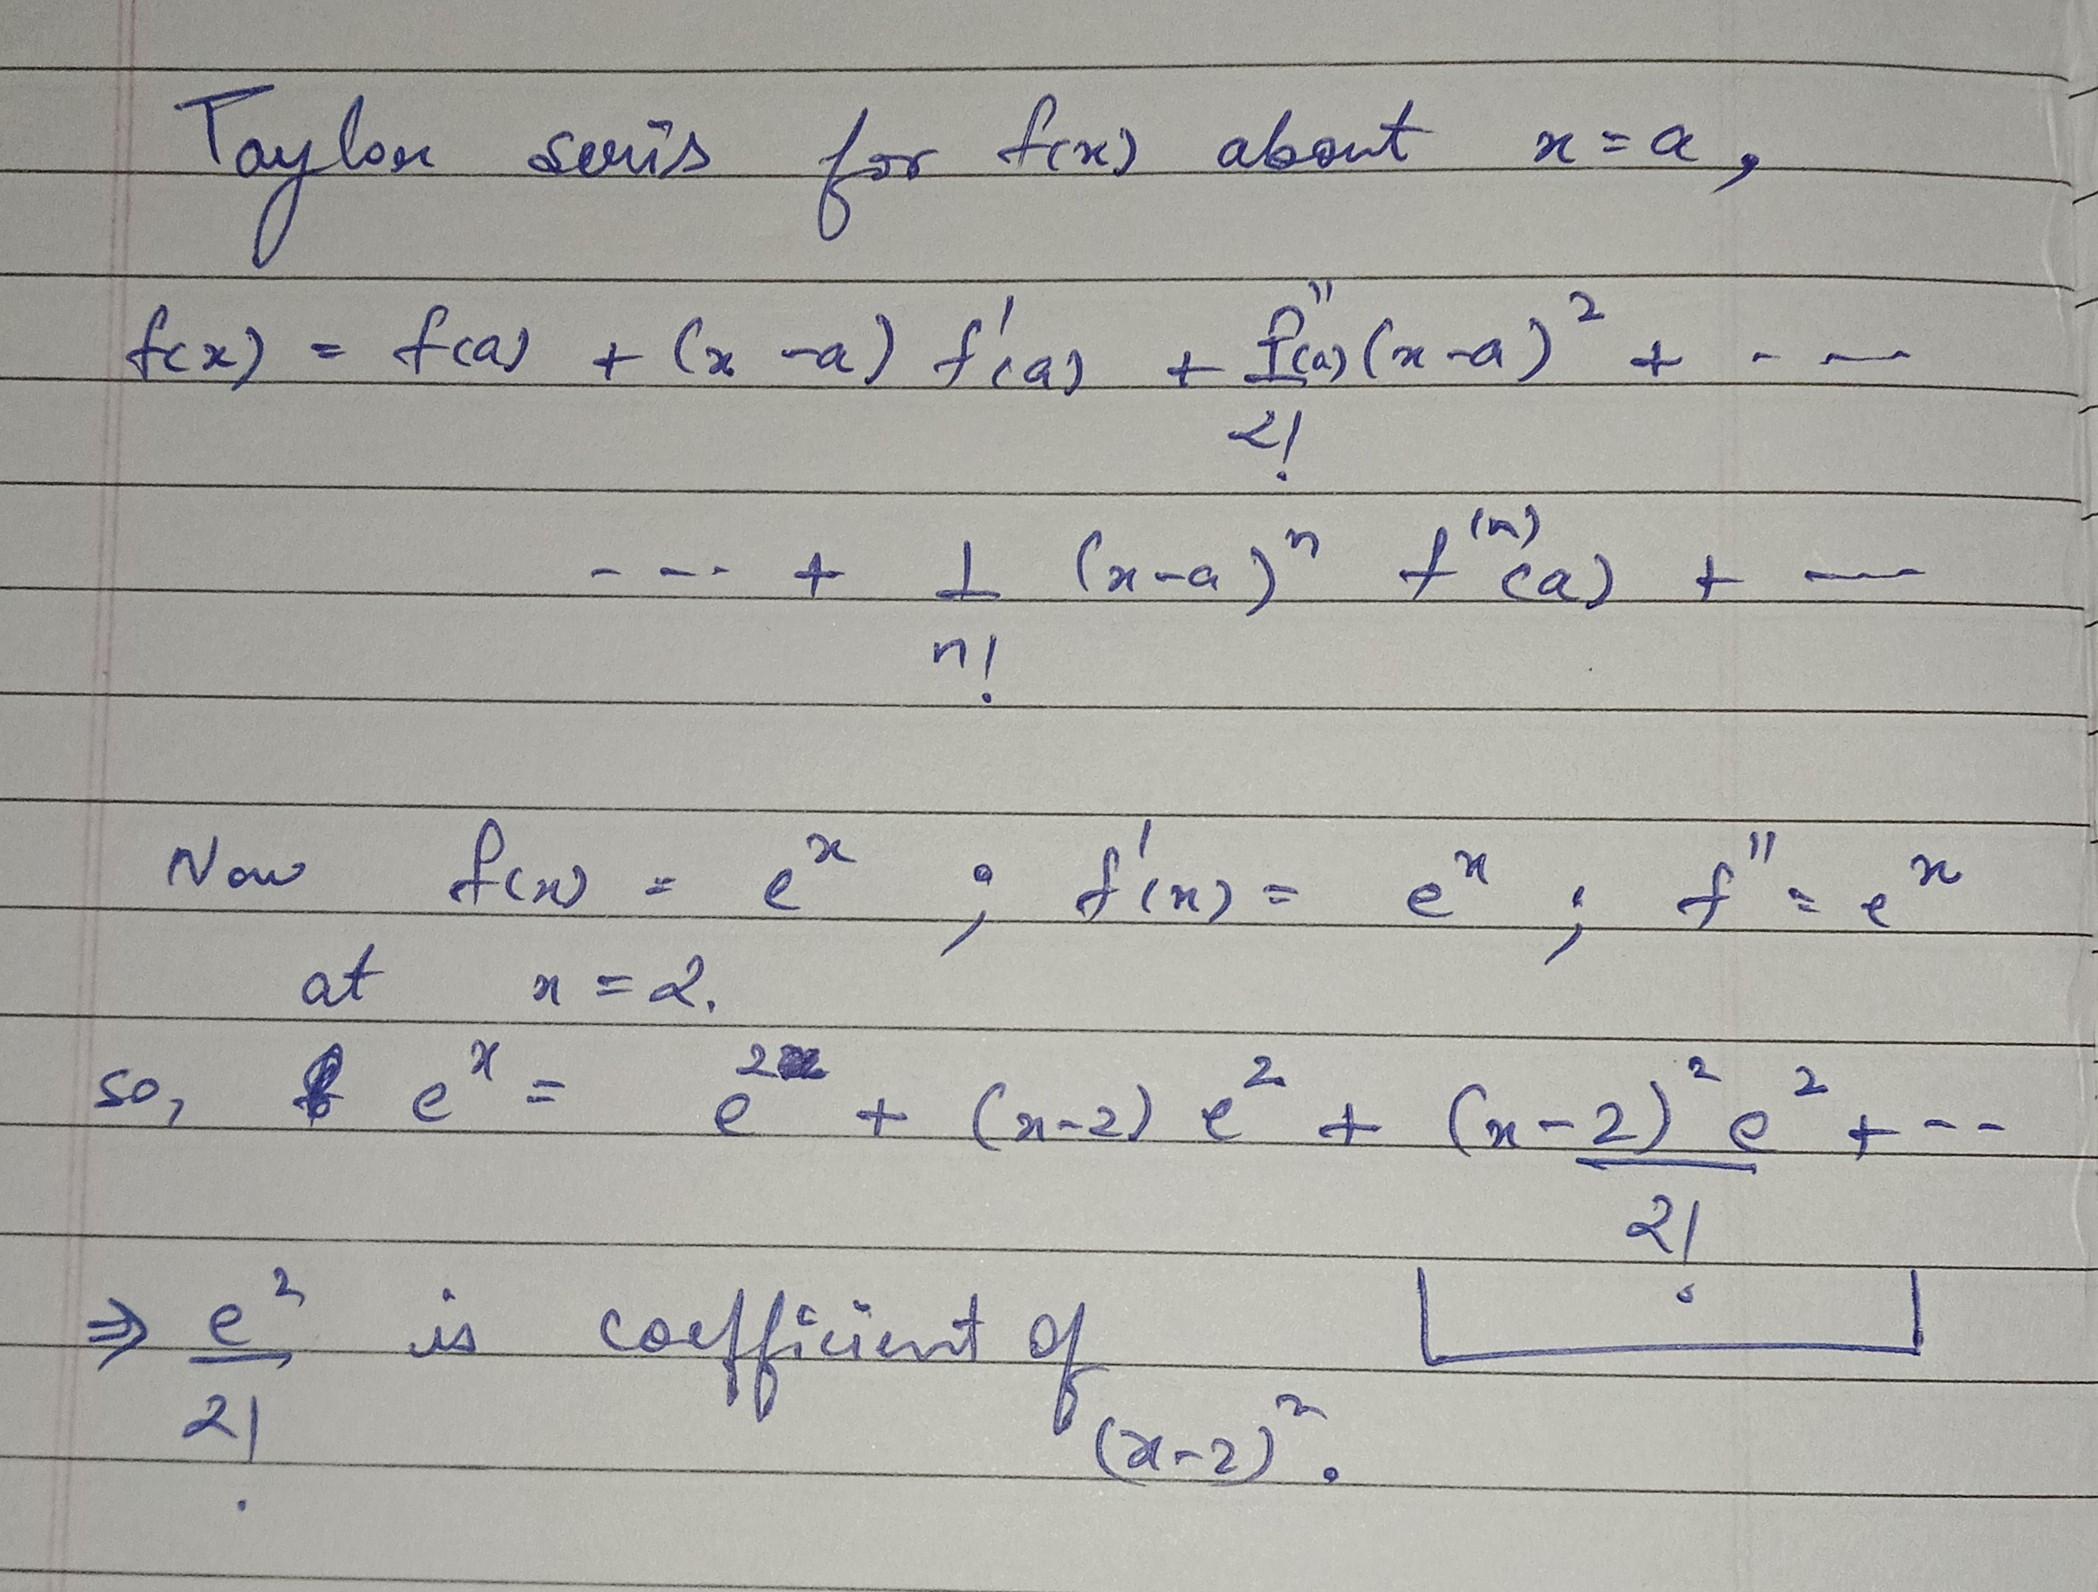 Taylor series for f(x) about x = a,
f(x) = f(a) + (x-a) f'(a) + f''(a)/2! (x-a)² + - —
- - - + 1/n! (x-a)ⁿ f⁽ⁿ⁾(a) + —
Now f(x) = eˣ ; f'(x) = eˣ ; f'' = eˣ
at x = 2.
so, eˣ = e² + (x-2) e² + (x-2)² e²/2! + - -
⇒ e²/2! is coefficient of (x-2)².